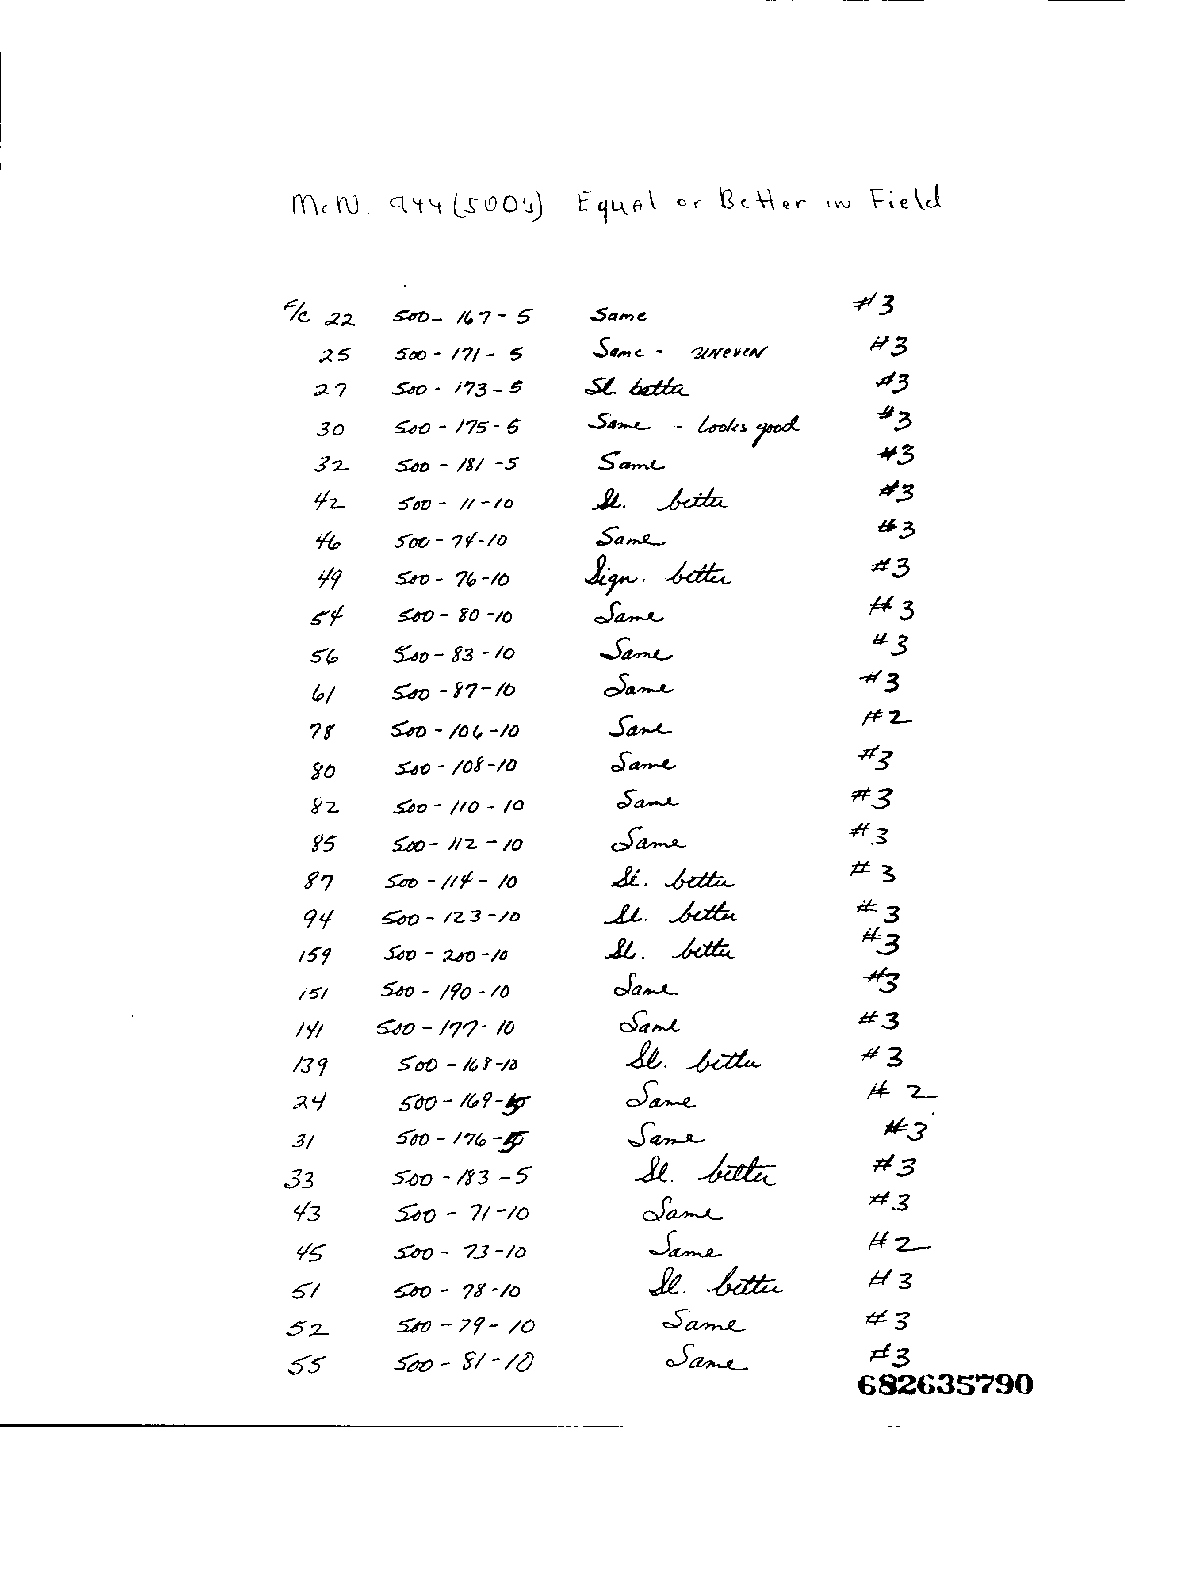 McN. 944 (500s) Equal or Better in Field
F/C 22 500-167-5 Same #3
25 500-171-5 Same - uneven #3
27 500-173-5 Sl. better #3
30 500-175-5 Same - Looks good #3
32 500-181-5 Same #3
42 500-11-10 Sl. better #3
46 500-74-10 Same #3
49 500-76-10 Sign. better #3
54 500-80-10 Same #3
56 500-83-10 Same #3
61 500-87-10 Same #3
78 500-106-10 Same #2
80 500-108-10 Same #3
82 500-110-10 Same #3
85 500-112-10 Same #3
87 500-114-10 Sl. better #3
94 500-123-10 Sl. better #3
159 500-200-10 Sl. better #3
151 500-190-10 Same #3
141 500-177-10 Same #3
139 500-168-10 Sl. better #3
24 500-169-5 Same #2
31 500-176-5 Same #3
33 500-183-5 Sl. better #3
43 500-71-10 Same #3
45 500-73-10 Same #2
51 500-78-10 Sl. better #3
52 500-79-10 Same #3
55 500-81-10 Same #3
682635790